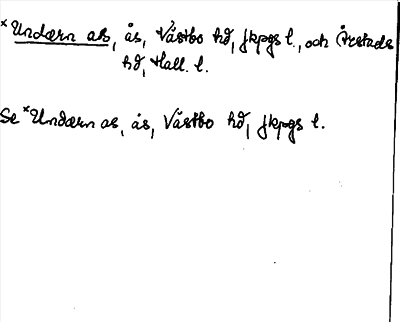 *Undærn as, ås, Västbo hd, Jkpgs l., och Årstads
hd, Hall. l.
Se *Undærn as, ås, Västbo hd, Jkpgs l.